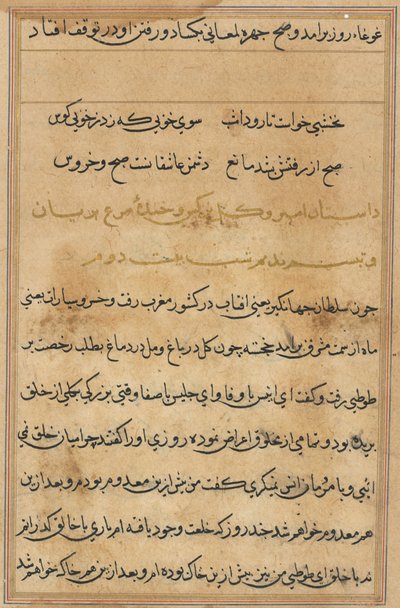 غوغاء روز برامد و صبح چهره لمعانی بکشاد و رفتن او در توقف افتاد
نخشبی خواست تا رود امشب سوی خوبی که زد ز خوبی کوس
صبح از رفتنش بشد مانع دشمن عاشقانست صبح و خروس
داستان امیر و و خندهٔ مرغ بریان
و شب بیست دوم
چون سلطان جهانکیر یعنی افتاب در کشور مغرب رفت و خسرو سیارات یعنی
ماه از سمت مشرق برامد خجسته چون کل در باغ و مل در دماغ بطلب رخصت بر
طوطی رفت و کفت ای انیس با وفا و ای جلیس با صفا وقتی بزرکی بکلی از خلق
بریده بود و تمامی از مخلوق اعراض نموده روزی او را کفتند چرا میان خلق نمی
ائیی و با مردمان انس نمیکیری کفت من پیش ازین معدوم بودم و بعد ازین
هم معدوم خواهم شد چند روز که خلعت وجود یافته ام باری با خالق کذرانم
نه با خلق ای طوطی من نیز پیش ازین خاک بوده ام و بعد ازین هم خاک خواهم شد